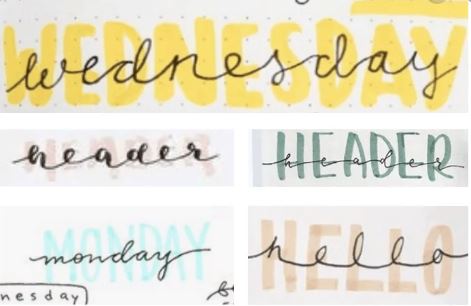 WEDNESDAY
wednesday
HEADER
header
HEADER
header
MONDAY
monday
nesday
HELLO
hello